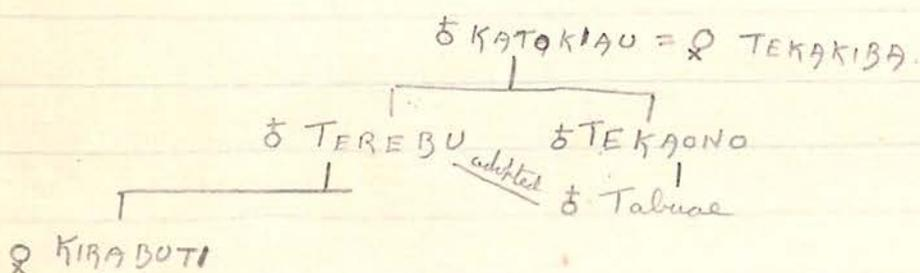 ♁ KATOKIAU = ♀ TEKAKIBA.
♁ TEREBU ♁ TEKAONO
adopted
♁ Tabuae
♀ KIRABUTI